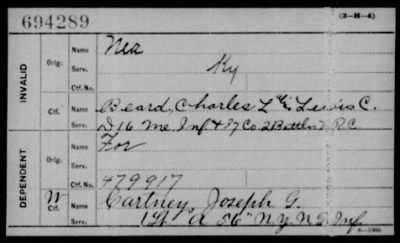 694289
(3-H-4)
INVALID
Orig.
Name
Nea
Serv.
Ky
Ctf. No.
Ctf.
Name
Beard, Charles L. Lewis C.
Serv.
D, 16 Me. Inf. & 37 Co. 2 Battln V. R.C.
DEPENDENT
Orig.
Name
For
Serv.
Ctf. No.
479917
W
Ctf.
Name
Cartney, Joseph G.
Serv.
1st A 56" N.Y. N.G. Inf.